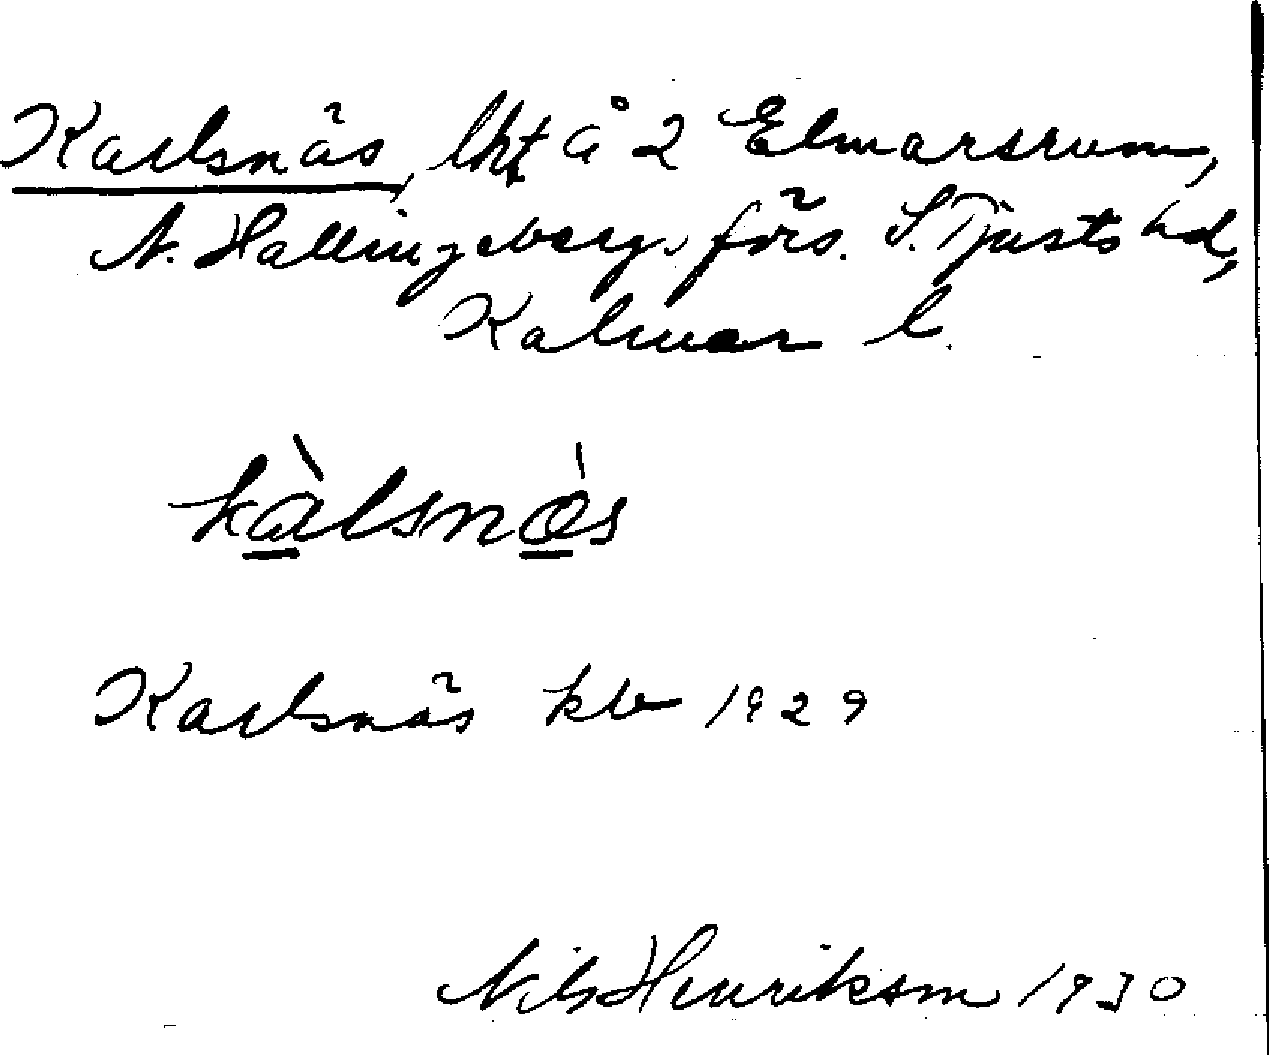 Karlsnäs, lht å 2 Elmarsrum,
N. Hallingebergs förs. S. Tjusts hd,
Kalmar l.
kàlsnös
Karlsnäs klr 1929
Nils Henriksson 1930